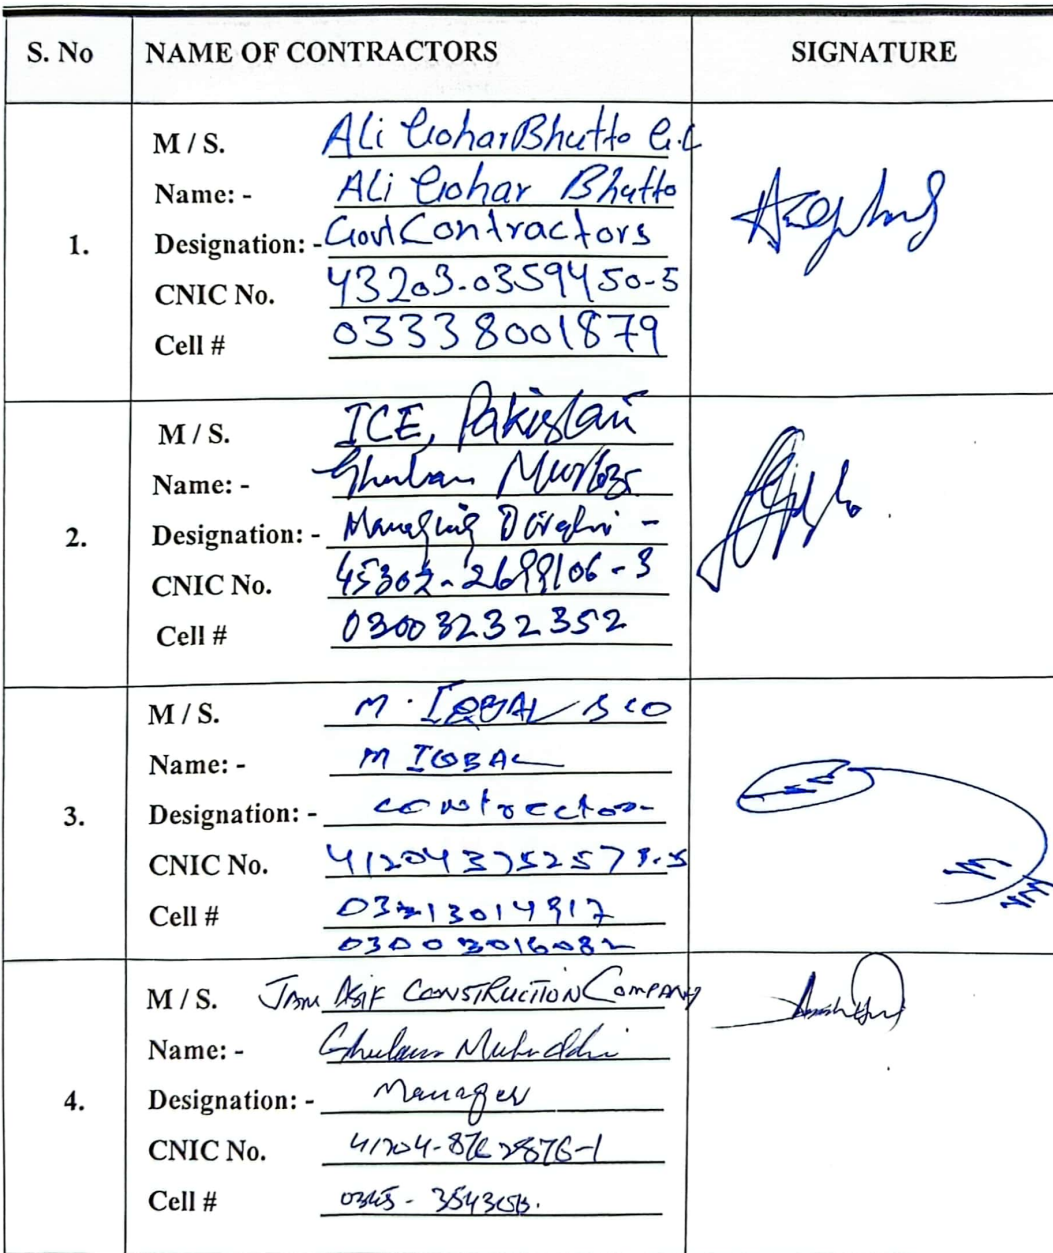 S. No NAME OF CONTRACTORS SIGNATURE
1.
M / S. Ali Gohar Bhutto G.C
Name: - Ali Gohar Bhutto
Designation: - Govt Contractors
CNIC No. 43203-0359450-5
Cell # 03338001879
2.
M / S. ICE, Pakistan
Name: - Ghulam Murtaza
Designation: - Managing Director -
CNIC No. 45302-2699106-3
Cell # 03003232352
3.
M / S. M. IQBAL & CO
Name: - M IQBAL
Designation: - contractor
CNIC No.
Cell #
03003016082
4.
M / S. JAM ASIF CONSTRUCTION COMPANY
Name: - Ghulam
Designation: - Manager
CNIC No.
Cell #